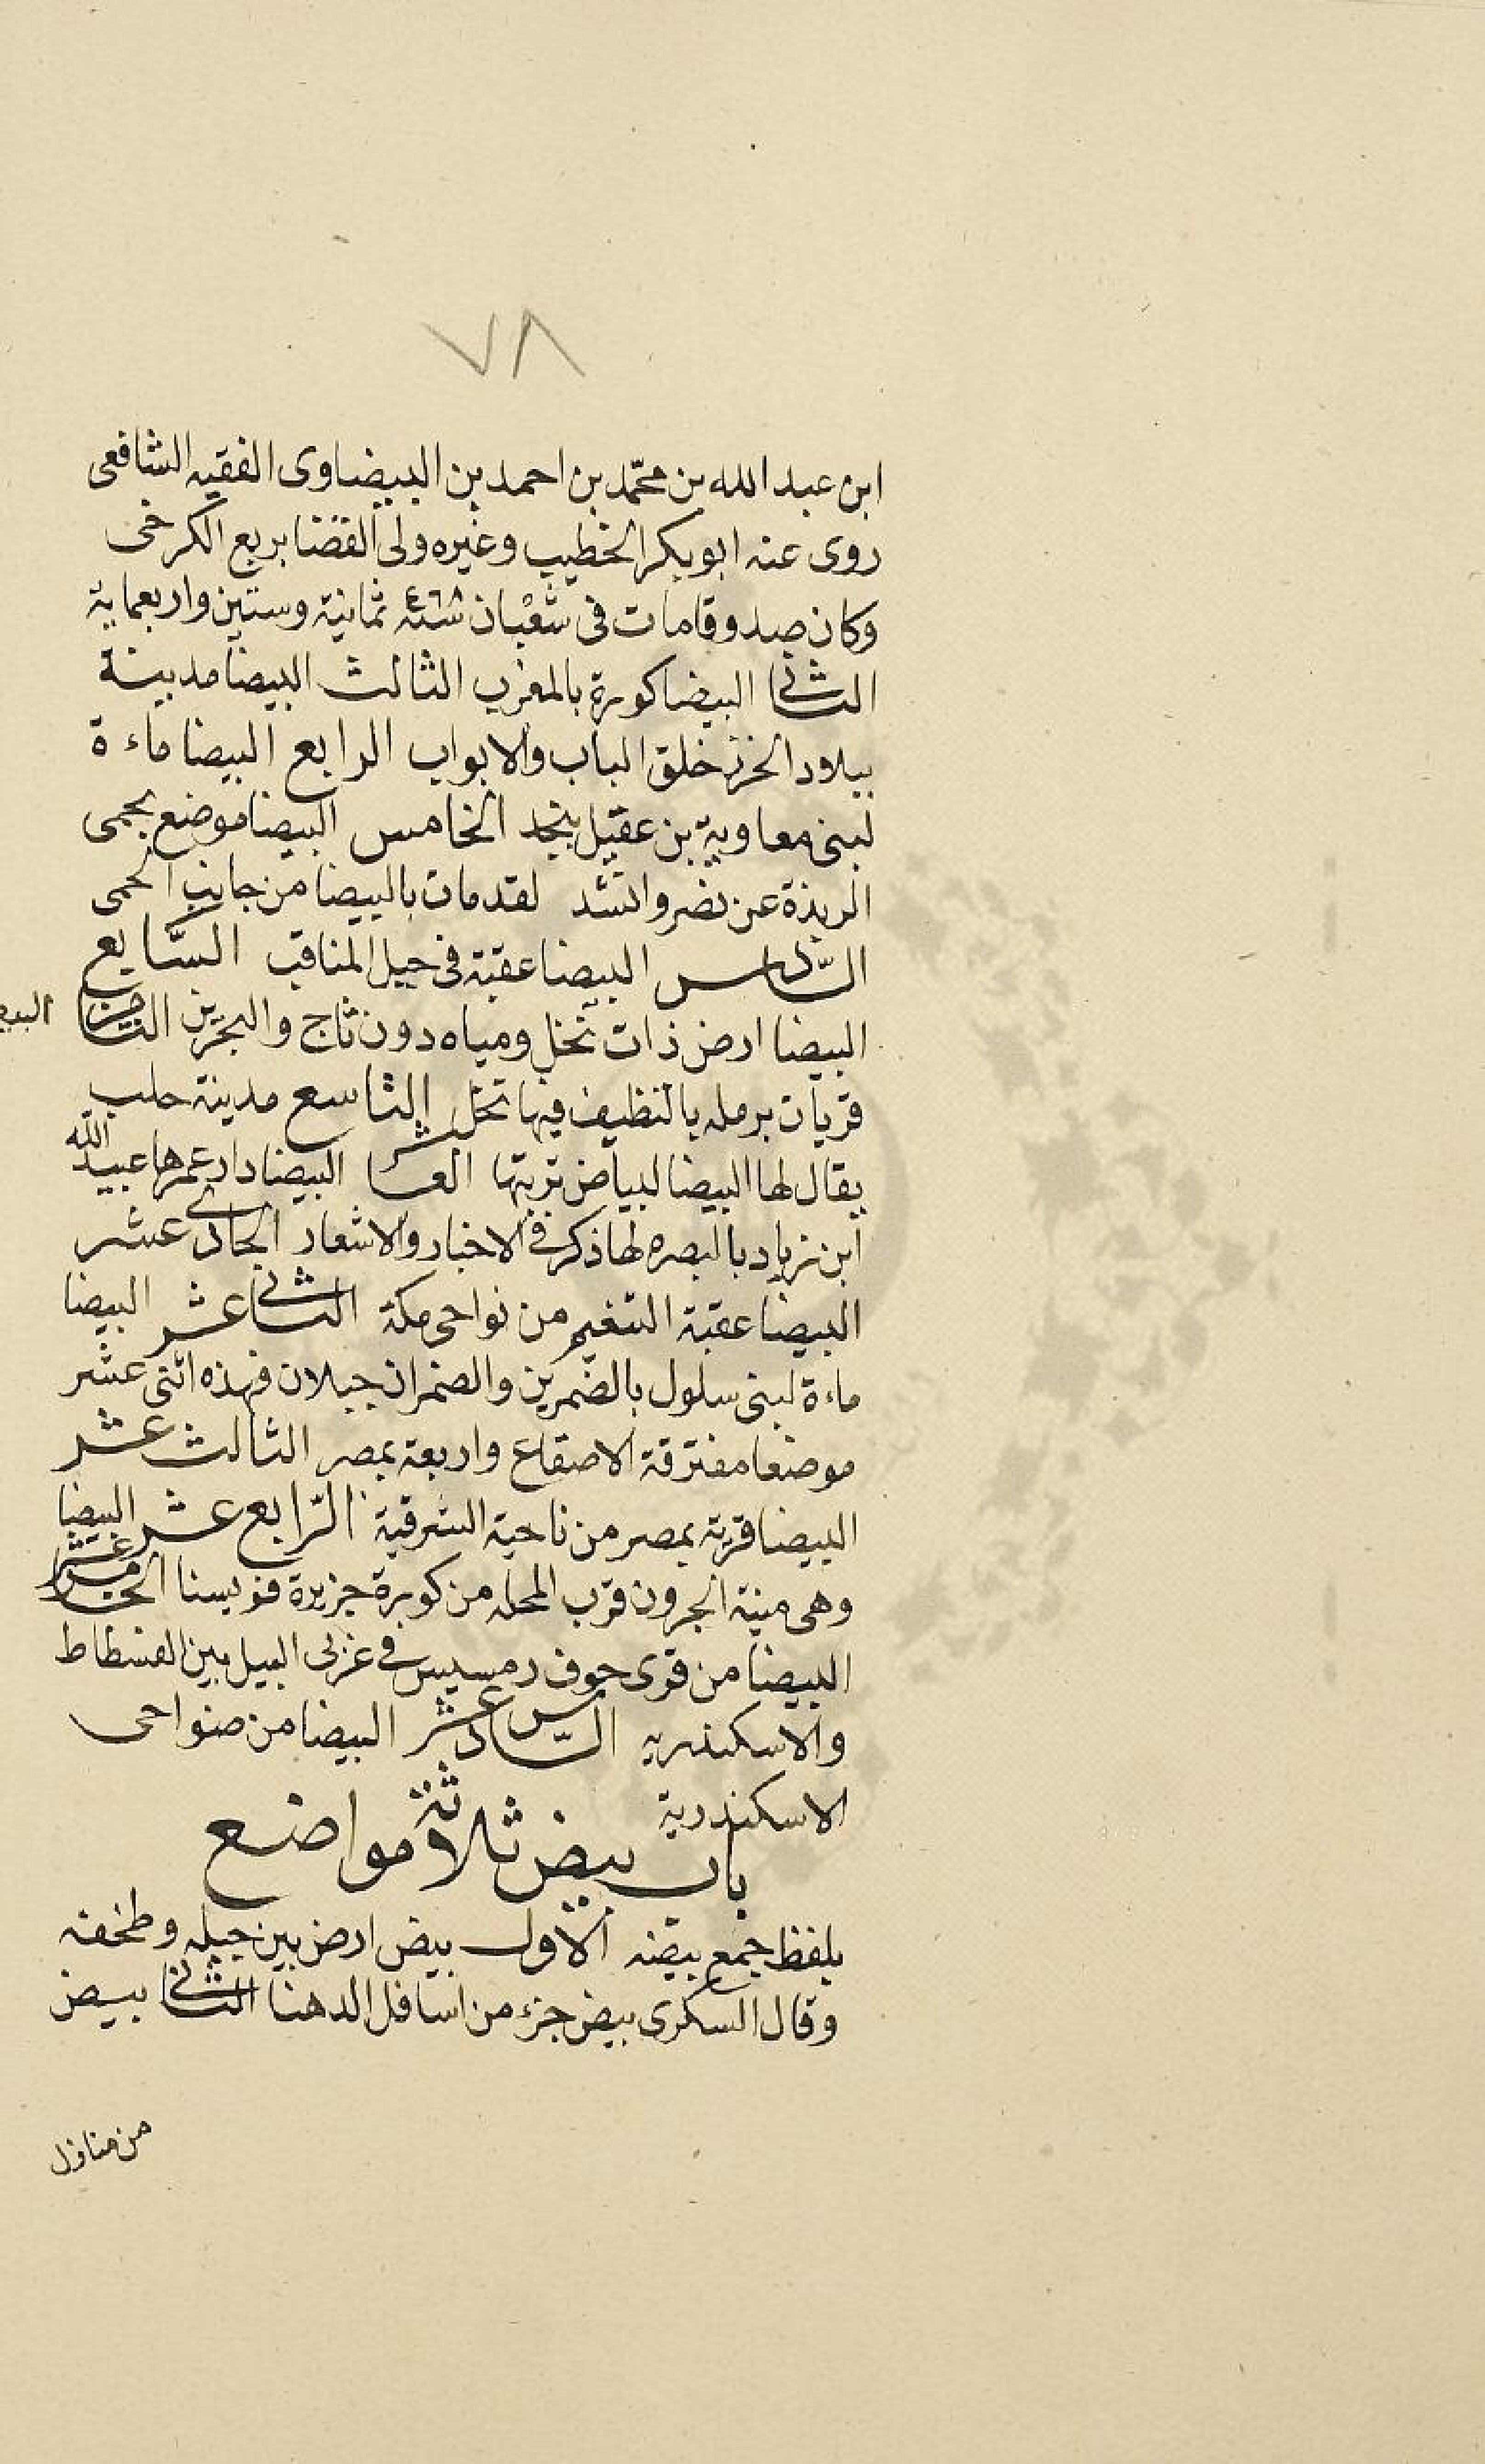 ٧٨
ابن عبد الله بن محمّد بن احمد بن البيضاوى الفقيه الشافعى
روى عنه ابو بكر الخطيب وغيره ولى القضا بربع الكرخى
وكان صدوقا مات فى شعبان سنة ٤٦٨ ثمانية وستين واربعماية
الثانى البيضا كورة بالمغرب الثالث البيضا مدينة
ببلاد الخزر خلق الباب والابواب الرابع البيضا ماءة
لبنى معاوية بن عقيل بنجد الخامس البيضا موضع بحمى
الربذة عن نصر وانشد لقد مات بالبيضا من جانب الحمى
السّادس البيضا عقبة فى جبل المناقب السّابع
البيضا ارض ذات نخل ومياه دون ثاج والبحرين الثامن البيضا
قريات برمله بالنظيف فيها نخل التاسع مدينة حلب
يقال لها البيضا لبياض تربتها العاشر البيضا دار عمرها عبيد الله
ابن زياد بالبصره لها ذكر فى الاخبار والاشعار الحادى عشر
البيضا عقبة التنعيم من نواحى مكة الثانى عشر البيضا
ماءة لبنى سلول بالضمرين والضمران جبلان فهذه اثنى عشر
موضعا مفترقة الاصقاع واربعة بمصر الثالث عشر
البيضا قرية بمصر من ناحية الشرقية الرّابع عشر البيضا
وهى مينة الجرون قرب المحله من كورة جزيرة قويسنا الخامس عشر
البيضا من قرى حوف رمسيس فى غربى النيل بين الفسطاط
والاسكندريه السّادس عشر البيضا من ضواحى
الاسكندرية
باب بيض ثلاثة مواضع
بلفظ جمع بيضه الاول بيض ارض بين جبله وطخفه
وقال السكرى بيض جزء من اسافل الدهنا الثانى بيض
من منازل